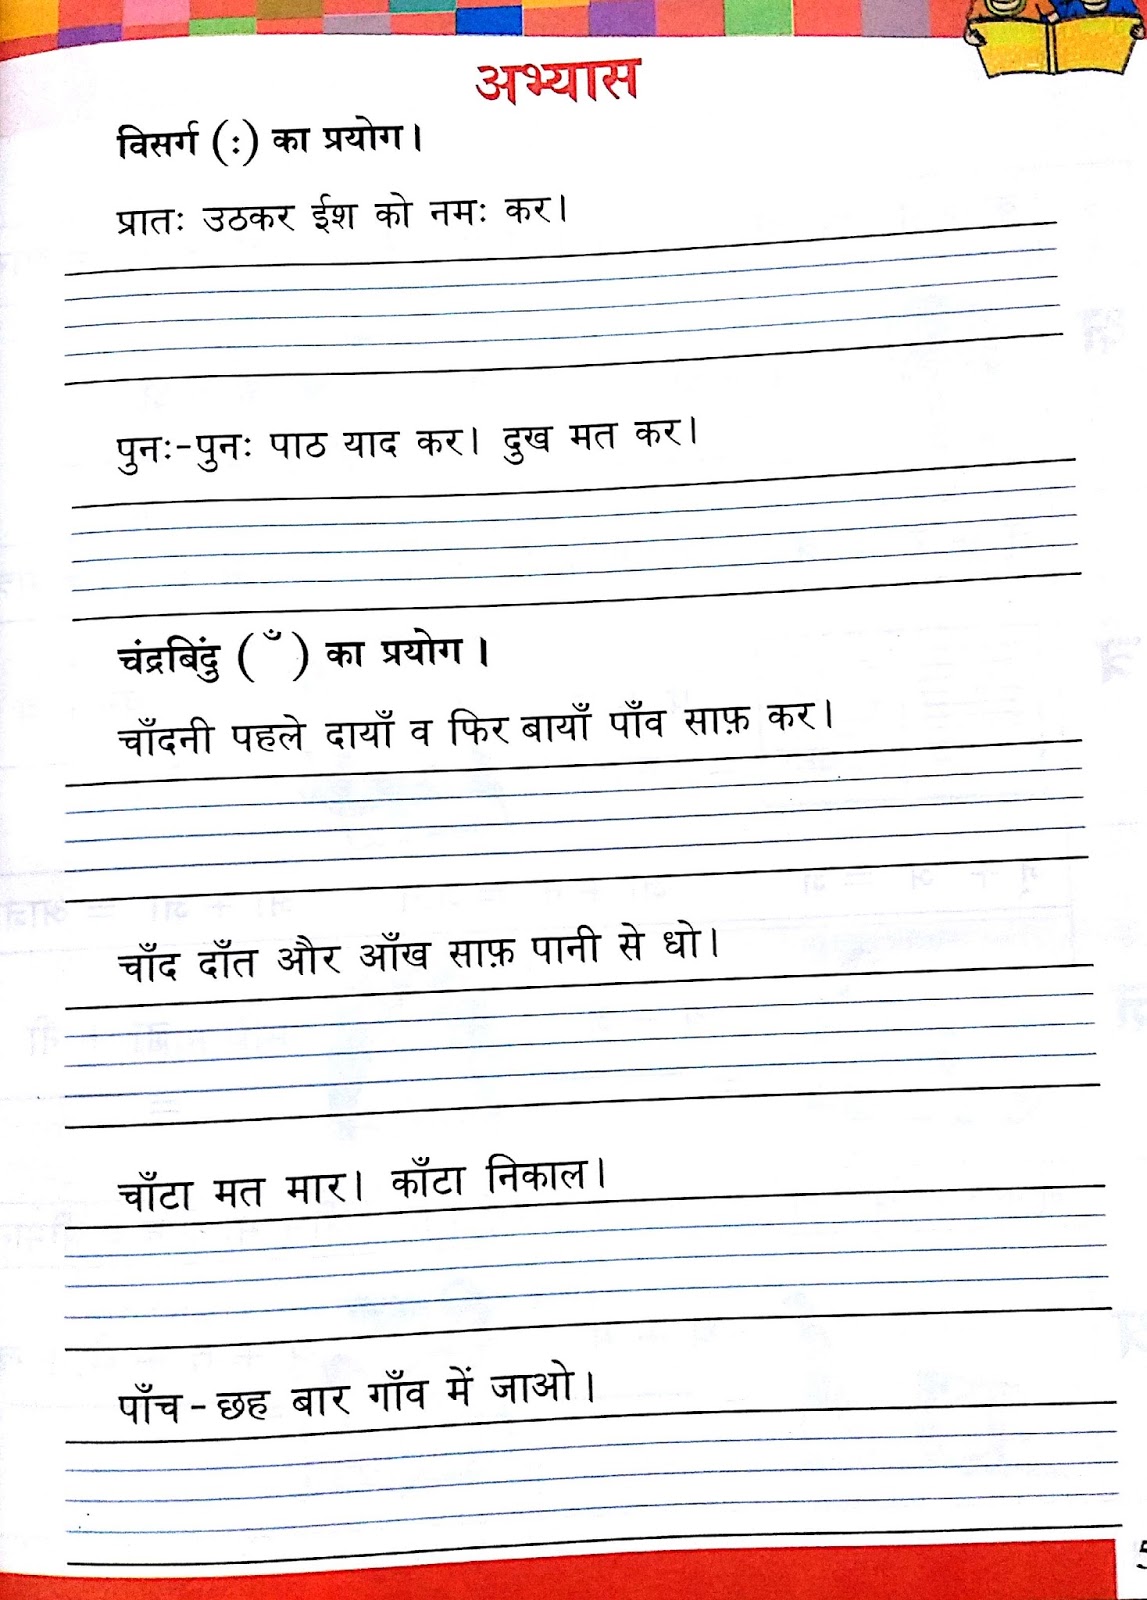 अभ्यास
विसर्ग (ः) का प्रयोग।
प्रातः उठकर ईश को नमः कर।
पुनः-पुनः पाठ याद कर। दुख मत कर।
चंद्रबिंदु ( ँ ) का प्रयोग।
चाँदनी पहले दायाँ व फिर बायाँ पाँव साफ़ कर।
चाँद दाँत और आँख साफ़ पानी से धो।
चाँटा मत मार। काँटा निकाल।
पाँच - छह बार गाँव में जाओ।